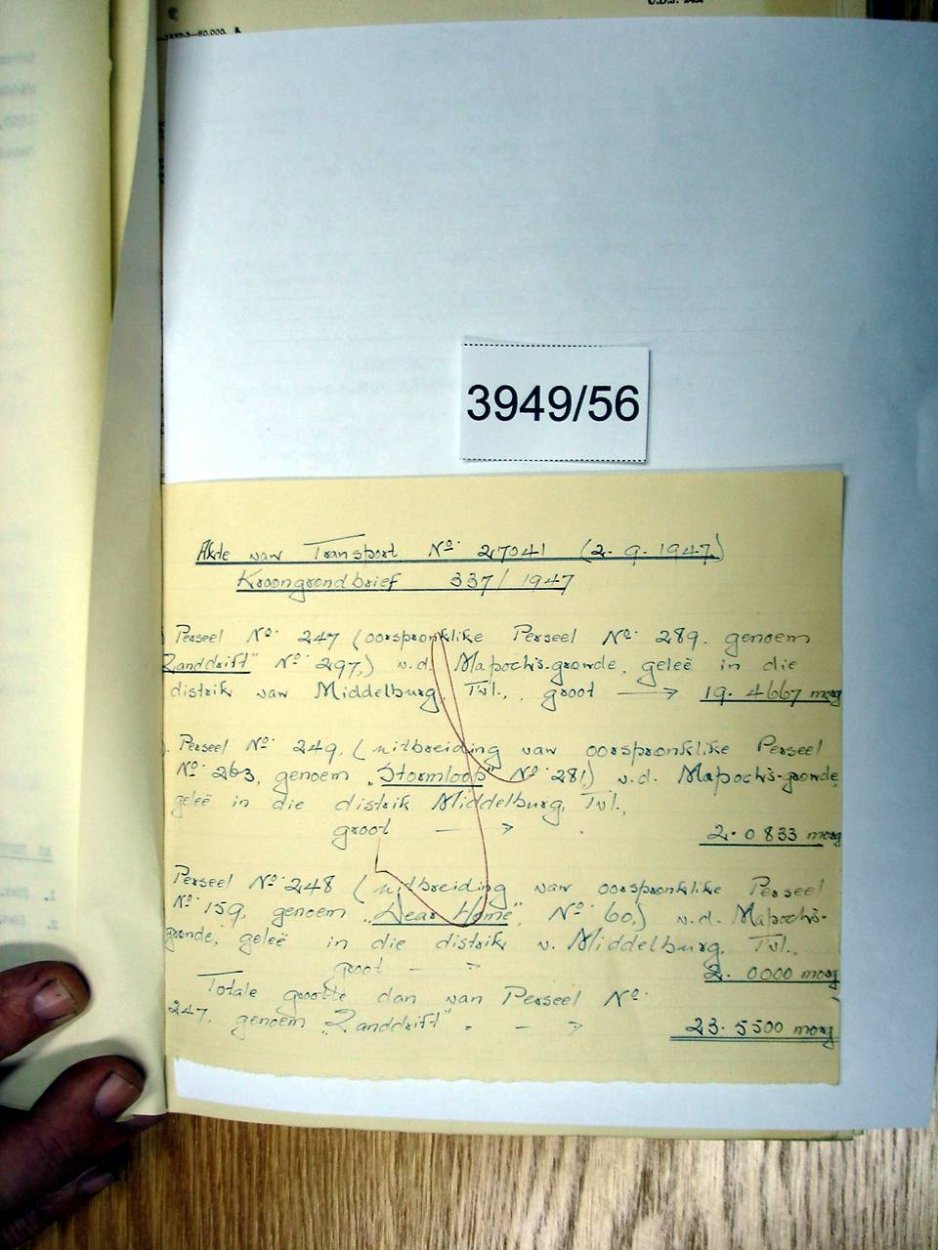 3949/56
Akte van Transport No. 27041 (2.9.1947)
Kroongrondbrief 337/1947
Perseel No. 247 (oorspronklike Perseel No. 289. genoem
Zanddrift" No. 297,) v.d. Mapoch's-gronde, geleë in die
distrik van Middelburg, Tvl., groot → 19.4667 morg
Perseel No. 249, (uitbreiding van oorspronklike Perseel
No. 263, genoem „Stormloop" No. 281,) v.d. Mapoch's-gronde,
geleë in die distrik Middelburg, Tvl.,
groot → 2.0833 morg
Perseel No. 248 (uitbreiding van oorspronklike Perseel
No. 159, genoem „Dear Home", No. 60,) v.d. Mapoch's-
gronde, geleë in die distrik v. Middelburg. Tvl.,
groot → 2.0000 morg
Totale grootte dan van Perseel No.
247. genoem „Zanddrift" → 23.5500 morg